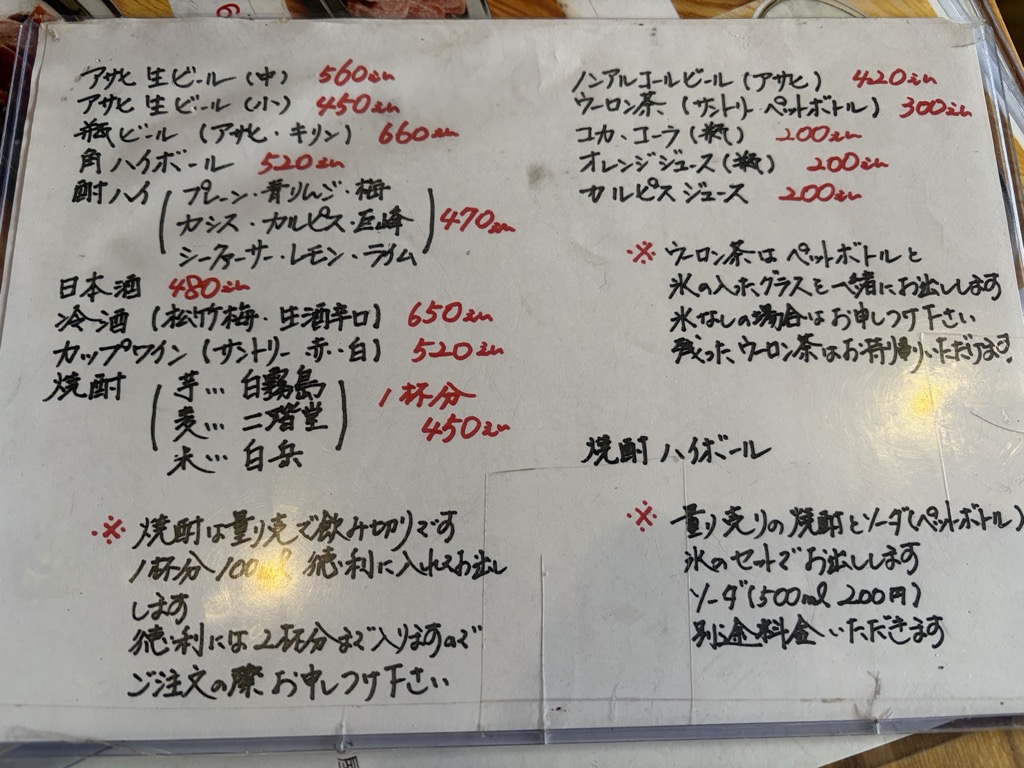 アサヒ 生ビール (中) 560えん
アサヒ 生ビール (小) 450えん
瓶ビール (アサヒ・キリン) 660えん
角ハイボール 520えん
酎ハイ (プレーン・青りんご・梅
カシス・カルピス・巨峰
シークァーサー・レモン・ライム) 470えん
日本酒 480えん
冷酒 (松竹梅・生酒辛口) 650えん
カップワイン (サントリー 赤・白) 520えん
焼酎 (芋… 白霧島
麦… 二階堂
米… 白岳) 1杯分 450えん
※ 焼酎は量り売で飲み切りです
1杯分100ml 徳利に入れてお出し
します
徳利には2杯分まで入りますので
ご注文の際お申しつけ下さい
ノンアルコールビール (アサヒ) 420えん
ウーロン茶 (サントリーペットボトル) 300えん
コカ・コーラ (瓶) 200えん
オレンジジュース (瓶) 200えん
カルピスジュース 200えん
※ ウーロン茶はペットボトルと
氷の入ったグラスを一緒にお出しします
氷なしの場合はお申しつけ下さい
残ったウーロン茶はお持帰りいただけます!
焼酎 ハイボール
※ 量り売りの焼酎とソーダ(ペットボトル)
氷のセットでお出しします
ソーダ(500ml 200円)
別途料金いただきます